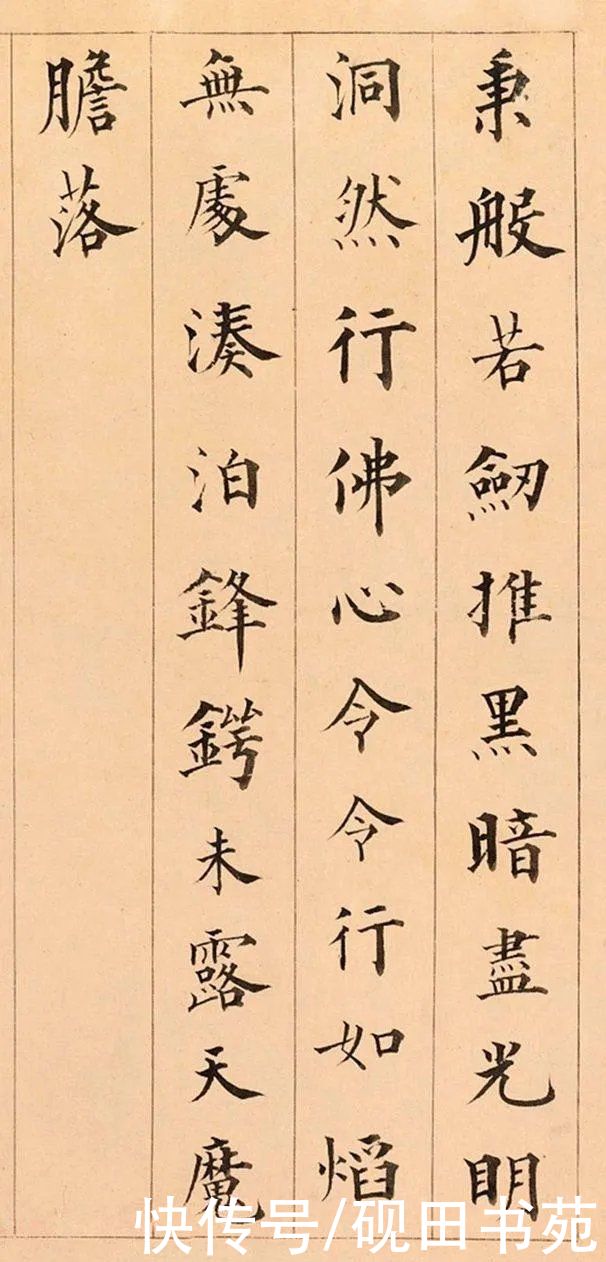 秉般若劒推黑暗盡光明
洞然行佛心令令行如熖
無處湊泊鋒鍔未露天魔
膽落
快传号/砚田书苑